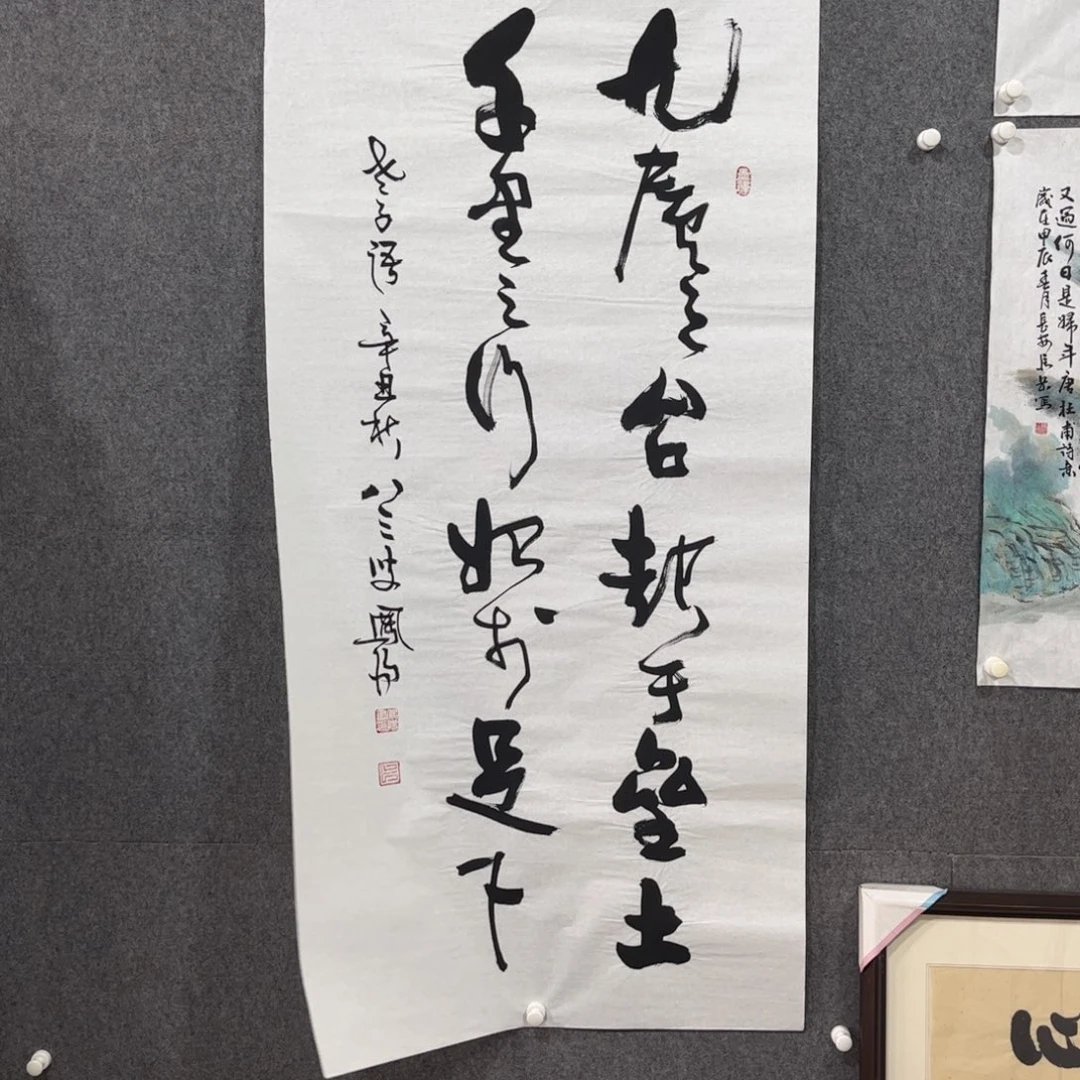 九層之台起于垒土
千里之行始於足下
老子語 辛丑秋 八三
又過何日是歸年唐杜甫詩意
歲在甲辰春月長安
心